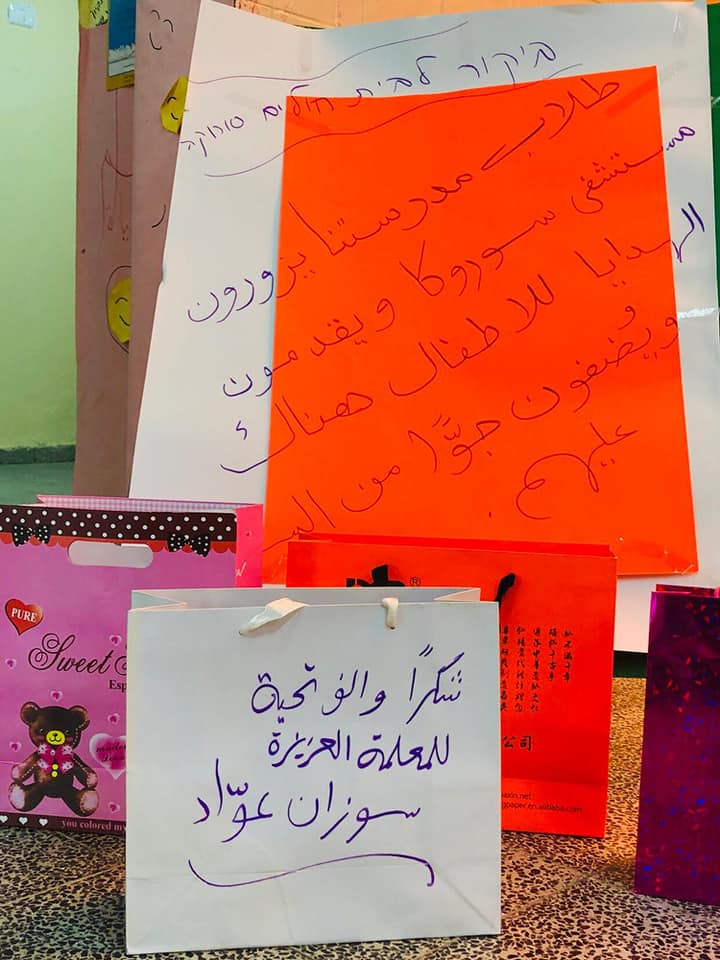 ביקור לבית חולים סורוקה
طلاب مدرستنا يزورون
مستشفى سوروكا ويقدمون
الهدايا للاطفال هناك
ويُضفون جوًّا من
عليهم.
PURE
Sweet
Esp
you colored my
®
公司
gpaper.en.alibaba.com
شكرًا والف تحية
للمعلمة العزيزة
سوزان عوّاد